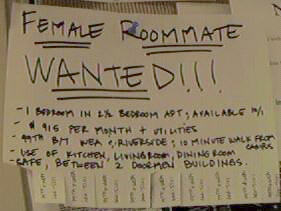 FEMALE ROOMMATE
WANTED!!!
- 1 BEDROOM IN 2½ BEDROOM APT; AVAILABLE 10/1
- $915 PER MONTH + UTILITIES
- 99TH B/T WEA & RIVERSIDE; 10 MINUTE WALK FROM
CAMPUS
- USE OF KITCHEN, LIVING ROOM, DINING ROOM
SAFE, BETWEEN 2 DOORMEN BUILDINGS.